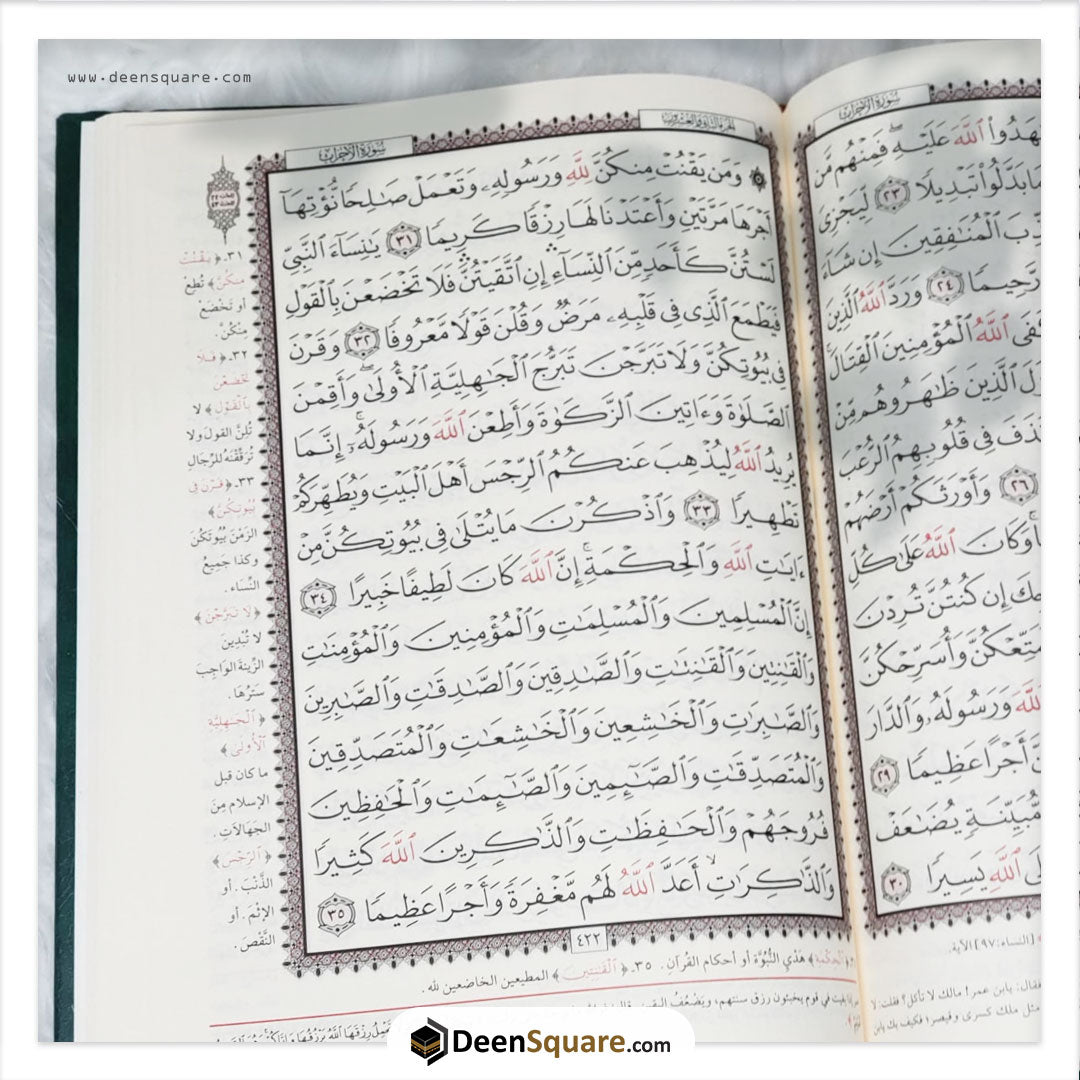 www.deensquare.com
سُورَةُ الأَحْزَابِ
الجزء الثاني والعشرون
وَمَن يَقْنُتْ مِنكُنَّ لِلَّهِ وَرَسُولِهِۦ وَتَعْمَلْ صَٰلِحًا نُّؤْتِهَآ
أَجْرَهَا مَرَّتَيْنِ وَأَعْتَدْنَا لَهَا رِزْقًا كَرِيمًا ٣١ يَٰنِسَآءَ ٱلنَّبِيِّ
لَسْتُنَّ كَأَحَدٍ مِّنَ ٱلنِّسَآءِ إِنِ ٱتَّقَيْتُنَّ فَلَا تَخْضَعْنَ بِٱلْقَوْلِ
فَيَطْمَعَ ٱلَّذِى فِى قَلْبِهِۦ مَرَضٌ وَقُلْنَ قَوْلًا مَّعْرُوفًا ٣٢ وَقَرْنَ
فِى بُيُوتِكُنَّ وَلَا تَبَرَّجْنَ تَبَرُّجَ ٱلْجَٰهِلِيَّةِ ٱلْأُولَىٰ وَأَقِمْنَ
ٱلصَّلَوٰةَ وَءَاتِينَ ٱلزَّكَوٰةَ وَأَطِعْنَ ٱللَّهَ وَرَسُولَهُۥٓ إِنَّمَا
يُرِيدُ ٱللَّهُ لِيُذْهِبَ عَنكُمُ ٱلرِّجْسَ أَهْلَ ٱلْبَيْتِ وَيُطَهِّرَكُمْ
تَطْهِيرًا ٣٣ وَٱذْكُرْنَ مَا يُتْلَىٰ فِى بُيُوتِكُنَّ مِنْ
ءَايَٰتِ ٱللَّهِ وَٱلْحِكْمَةِ إِنَّ ٱللَّهَ كَانَ لَطِيفًا خَبِيرًا ٣٤
إِنَّ ٱلْمُسْلِمِينَ وَٱلْمُسْلِمَٰتِ وَٱلْمُؤْمِنِينَ وَٱلْمُؤْمِنَٰتِ
وَٱلْقَٰنِتِينَ وَٱلْقَٰنِتَٰتِ وَٱلصَّٰدِقِينَ وَٱلصَّٰدِقَٰتِ وَٱلصَّٰبِرِينَ
وَٱلصَّٰبِرَٰتِ وَٱلْخَٰشِعِينَ وَٱلْخَٰشِعَٰتِ وَٱلْمُتَصَدِّقِينَ
وَٱلْمُتَصَدِّقَٰتِ وَٱلصَّٰٓئِمِينَ وَٱلصَّٰٓئِمَٰتِ وَٱلْحَٰفِظِينَ
فُرُوجَهُمْ وَٱلْحَٰفِظَٰتِ وَٱلذَّٰكِرِينَ ٱللَّهَ كَثِيرًا
وَٱلذَّٰكِرَٰتِ أَعَدَّ ٱللَّهُ لَهُم مَّغْفِرَةً وَأَجْرًا عَظِيمًا ٣٥
٤٢٢
٣١ـ ﴿يَقْنُتْ
مِنكُنَّ﴾ تُطِعْ
أو تَخْضَعْ
مِنْكُنَّ.
٣٢ـ ﴿فَلَا
تَخْضَعْنَ
بِٱلْقَوْلِ﴾ لا
تُلِنَّ القولَ ولا
تُرَقِّقْنَهُ للرِّجَالِ
٣٣ـ ﴿قَرْنَ فِى
بُيُوتِكُنَّ﴾
الزَمْنَ بُيُوتَكُنَّ
وكذا جميعُ
النِّسَاء.
﴿لَا تَبَرَّجْنَ﴾
لا تُبْدِينَ
الزِّينةَ الوَاجِبَ
سَتْرُهَا.
﴿ٱلْجَٰهِلِيَّةِ
ٱلْأُولَىٰ﴾
ما كان قبل
الإسلام مِنَ
الجَهَالَاتِ.
﴿ٱلرِّجْسَ﴾
الذَّنْبَ. أو
الإثْمَ. أو
النَّقْصَ.
﴿ٱلْحِكْمَةِ﴾ هَدْيِ النُّبُوَّة أو أحكام القُرآنِ. ٣٥ـ ﴿ٱلْقَٰنِتِينَ﴾ المطيعين الخاضعين لله.
سُورَةُ الأَحْزَابِ
ٱللَّهَ عَلَيْهِ فَمِنْهُم مَّن
مَا بَدَّلُوا۟ تَبْدِيلًا ٢٣ لِّيَجْزِىَ
ٱلْمُنَٰفِقِينَ إِن شَآءَ
رَّحِيمًا ٢٤ وَرَدَّ ٱللَّهُ ٱلَّذِينَ
ٱللَّهُ ٱلْمُؤْمِنِينَ ٱلْقِتَالَ
ٱلَّذِينَ ظَٰهَرُوهُم مِّنْ
فِى قُلُوبِهِمُ ٱلرُّعْبَ
٢٦ وَأَوْرَثَكُمْ أَرْضَهُمْ
وَكَانَ ٱللَّهُ عَلَىٰ كُلِّ
إِن كُنتُنَّ تُرِدْنَ
وَأُسَرِّحْكُنَّ
ٱللَّهَ وَرَسُولَهُۥ وَٱلدَّارَ
أَجْرًا عَظِيمًا ٢٩
مُّبَيِّنَةٍ يُضَٰعَفْ
ٱللَّهِ يَسِيرًا ٣٠
[النساء: ٩٧] الآية.
DeenSquare.com